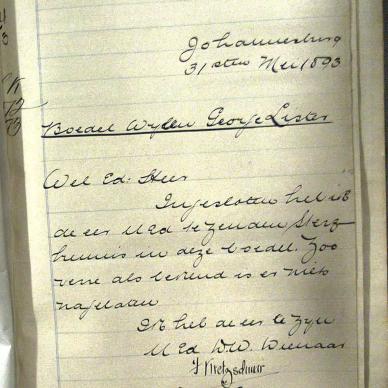 Johannesburg
31sten Mei 1893
Boedel Wylen George Lister
Wel Ed: Heer
Ingesloten heb ik
de eer U Ed te zenden Sterf
kennis in deze boedel. Zoo
verre als bekend is er niets
nagelaten
Ik heb de eer te zyn
U Ed DW. Dienaar